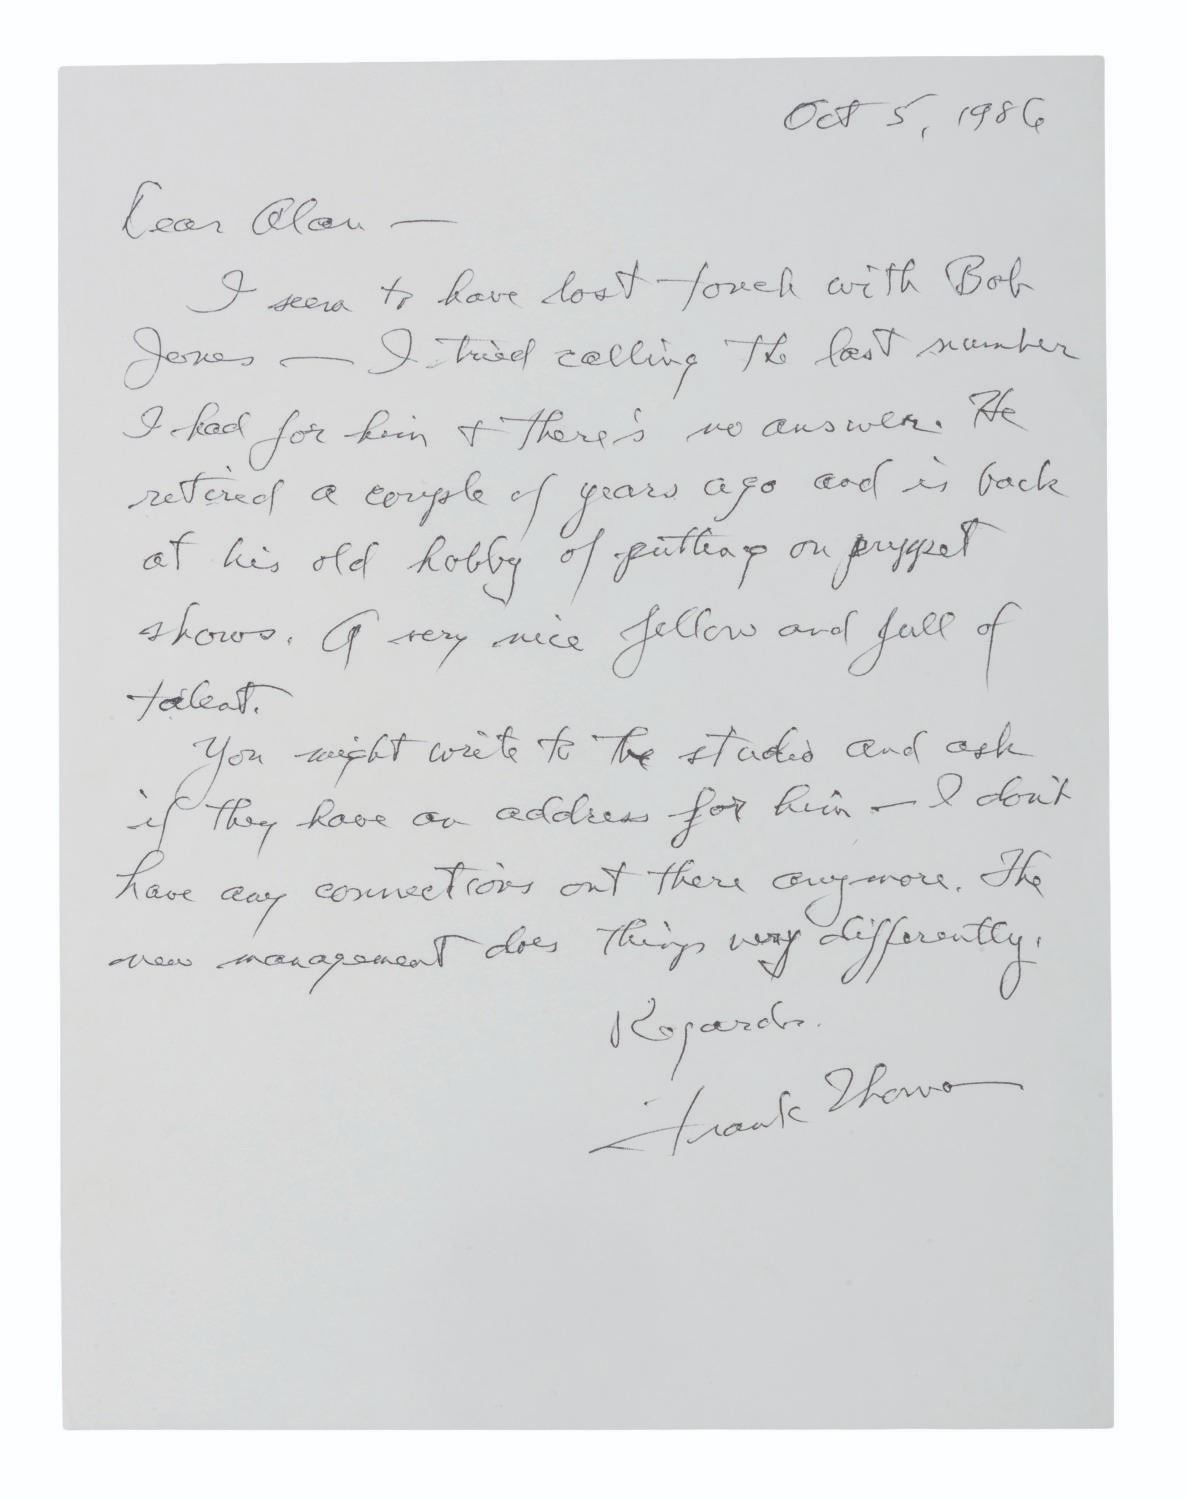 Oct 5, 1986
Dear Alan —
I seem to have lost touch with Bob
Jones — I tried calling the last number
I had for him & there's no answer. He
retired a couple of years ago and is back
at his old hobby of putting on puppet
shows. A very nice fellow and full of
talent.
You might write to the studio and ask
if they have an address for him — I don't
have any connections out there anymore. The
new management does things very differently.
Regards.
Frank Thomas